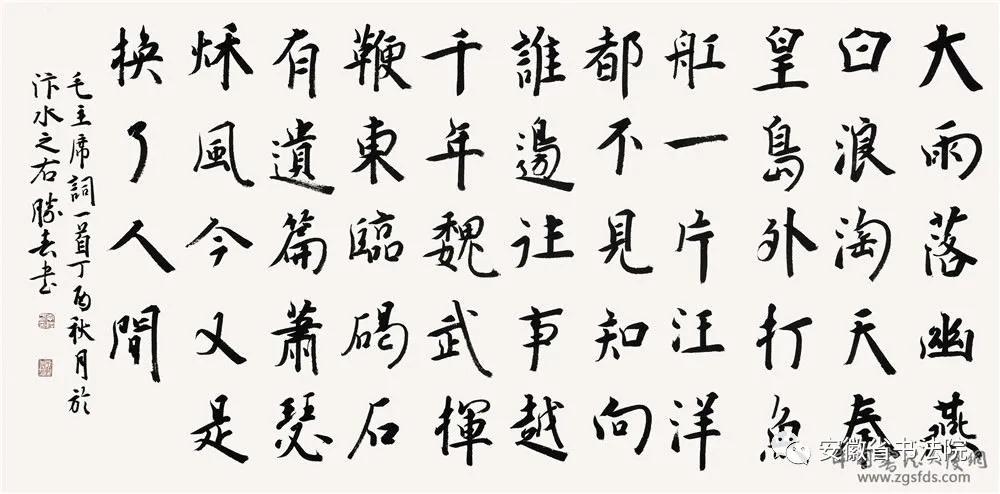 大雨落幽燕
白浪淘天秦
皇島外打魚
舡一片汪洋
都不見知向
誰邊往事越
千年魏武揮
鞭東臨碣石
有遺篇蕭瑟
秋風今又是
換了人間
毛主席詞一首丁酉秋月於
汴水之右勝春書
安徽省书法院
www.zgsfds.com